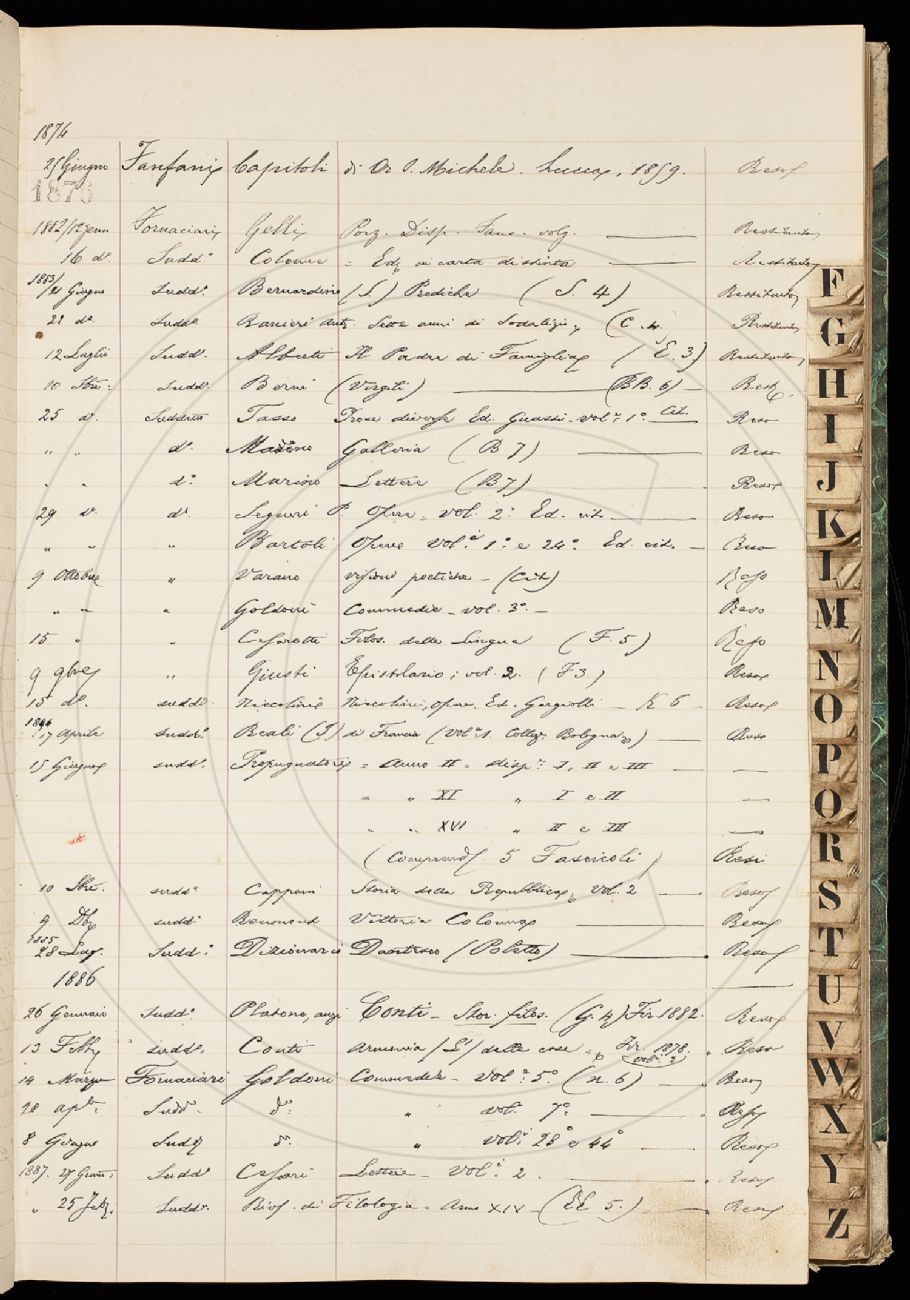 1874
25 Giugno Fanfani Capitoli di Or S. Michele. Lucca, 1859. Reso
1876
1882/12 genn Fornaciari Gelli Disp. volg. Restituito
16 do Suddo Colonna = Ed. in carta distinta Restituito
1883/
21 Giugno Suddo. Bernardino (S.) Prediche (S. 4) Restituito
22 do. Suddo. Ranieri Ant. Sette anni di Sodalizio, (C. 4. Restituito
12 Luglio Suddo. Alberti Il Padre di Famiglia (E. 3) Restituito
10 Suddo. Berni (Virgili) (BB. 6) — Rest.
25 do. Suddetto Tasso Prose diverse Ed. Guasti. vol. 1o. Cit. Reso
" " do. Marino Galleria (B 7) Reso
" " do. Marino Lettere (B 7) Reso
29 do. do. Segneri P. Opere. vol. 2o Ed. cit. Reso
" " " Bartoli Opere vol. 1o. e 24o. Ed. cit. — Reso
9 Ottobre " Varano visioni poetiche - (Cit) Reso
" " " Goldoni Commedie - vol. 3o. — Reso
15 " " Cesarotti Filos. della Lingua (F. 5) Reso
9 9bre " Giusti Epistolario; vol. 2. (F 3) Reso
15 do. suddo Niccolini Niccolini, opere, Ed. Gargiolli — K 6 — Reso
1884
17 Aprile suddo. Reali (I) di Francia (Vol. 1. Collez. Bologna) — Reso
15 Giugno suddo. Propugnatore = Anno II = disp. I, II e III — —
= " XI " I e II —
" " XVI " II e III —
(Comprend. 5 Fascicoli) Resi
10 suddo Capponi Storia della Repubblica, Vol. 2 — Reso
9 Dbre suddo Reumont Vittoria Colonna Reso
1885
28 Lug. Suddo: Dizionario Dantesco (Poletto) Reso
1886
26 Gennaio Suddo. Platone, anzi Conti - Stor. filos. (G. 4) Fir 1882. Reso
13 Febb suddo. Conti Armonia (L') delle cose. Fir. 1878. Reso
(vol. 2)
14 Marzo Fornaciari Goldoni Commedie - Vol. 5o. (n. 6) — Reso
20 aple. Suddo. do. " vol. 7o. Reso
8 Giugno Suddo do. " vol. 28o e 44o Reso
1887. 27 Genn: Suddo Cesari Lettere - Vol. 2. Reso
" 25 Feb. Suddo. Riv. di Filologia - Anno XIV - (EE 5.) Reso
F
G
H
I
J
K
L
M
N
O
P
Q
R
S
T
U
V
W
X
Y
Z